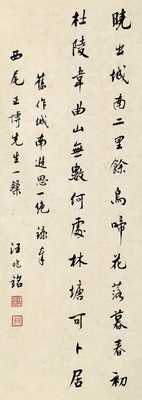 曉出城南二里餘烏啼花落暮春初
杜陵韋曲山無數何處林塘可卜居
舊作城南遊思一絕錄奉
西尾王博先生一粲
汪兆銘